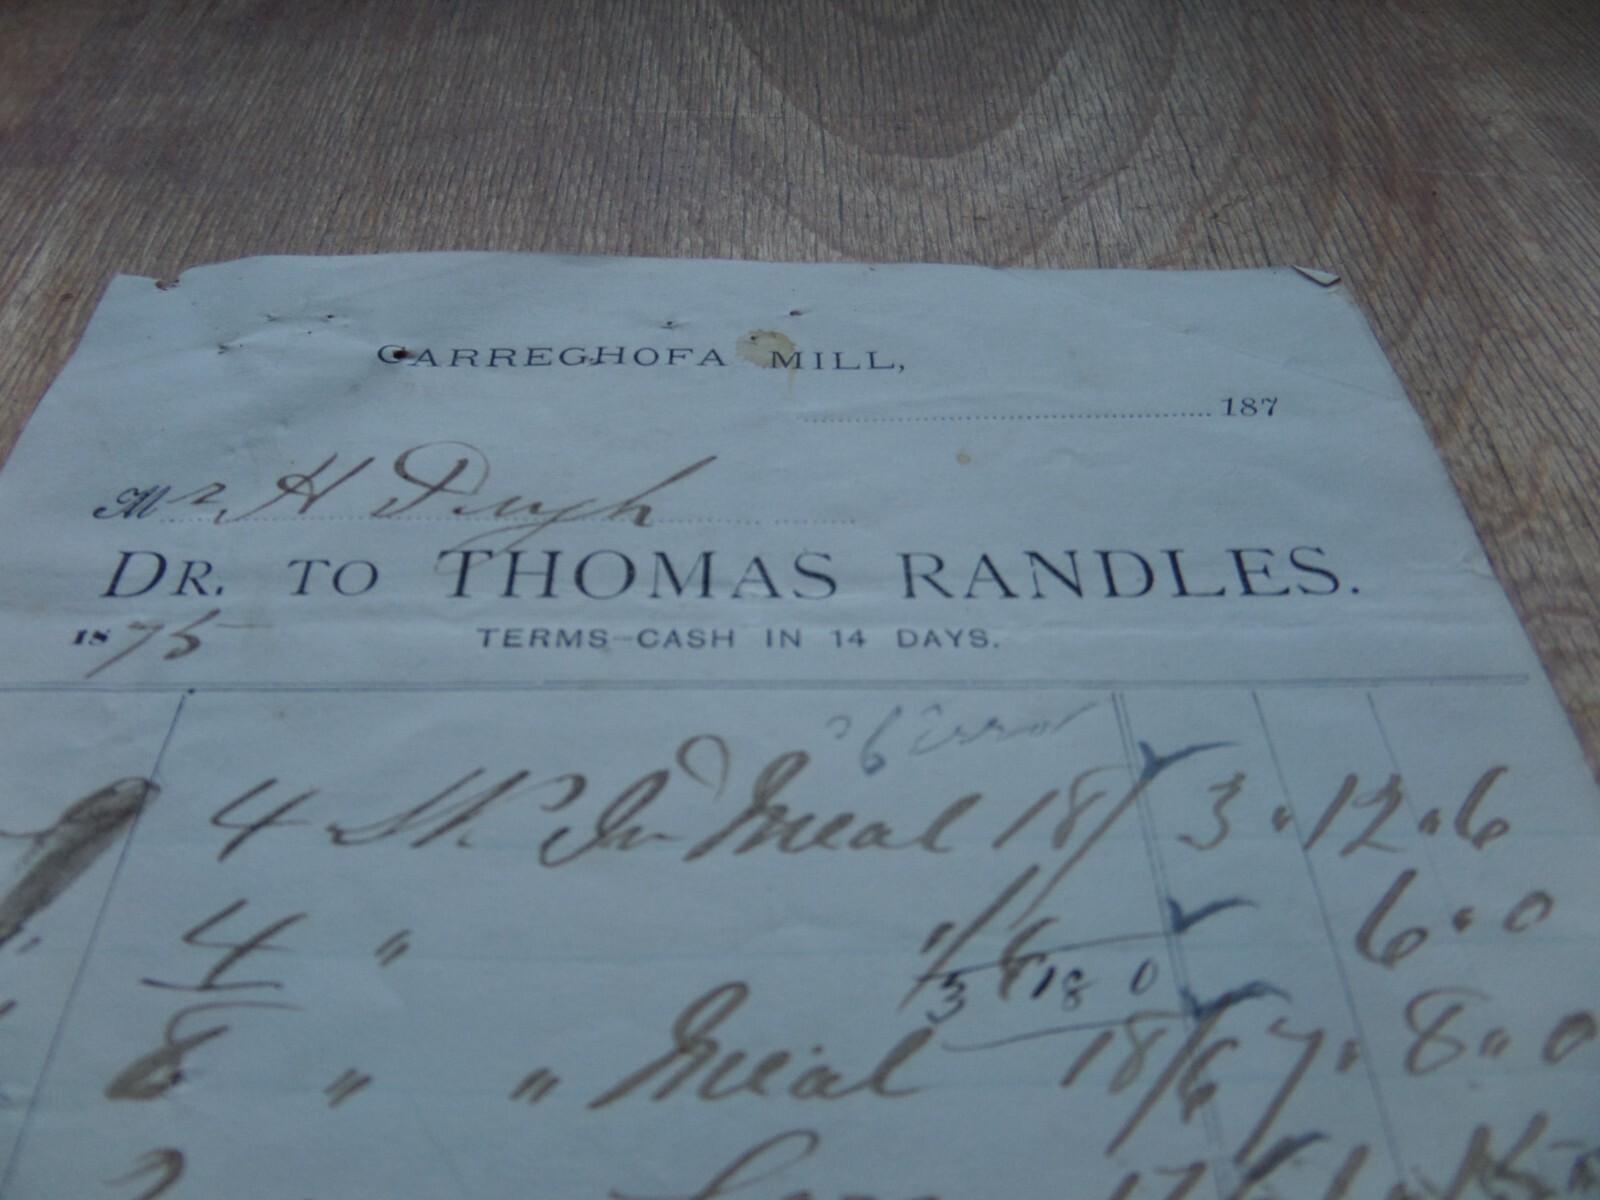 CARREGHOFA MILL,
187
Mr H Pugh
DR. TO THOMAS RANDLES.
1875 TERMS-CASH IN 14 DAYS.
6 error
4 Sk In Meal 18/ 3 " 12 " 6
4 " 1/6 6 " 0
3 18 0
8 " " Meal 18/6 7 " 8 " 0